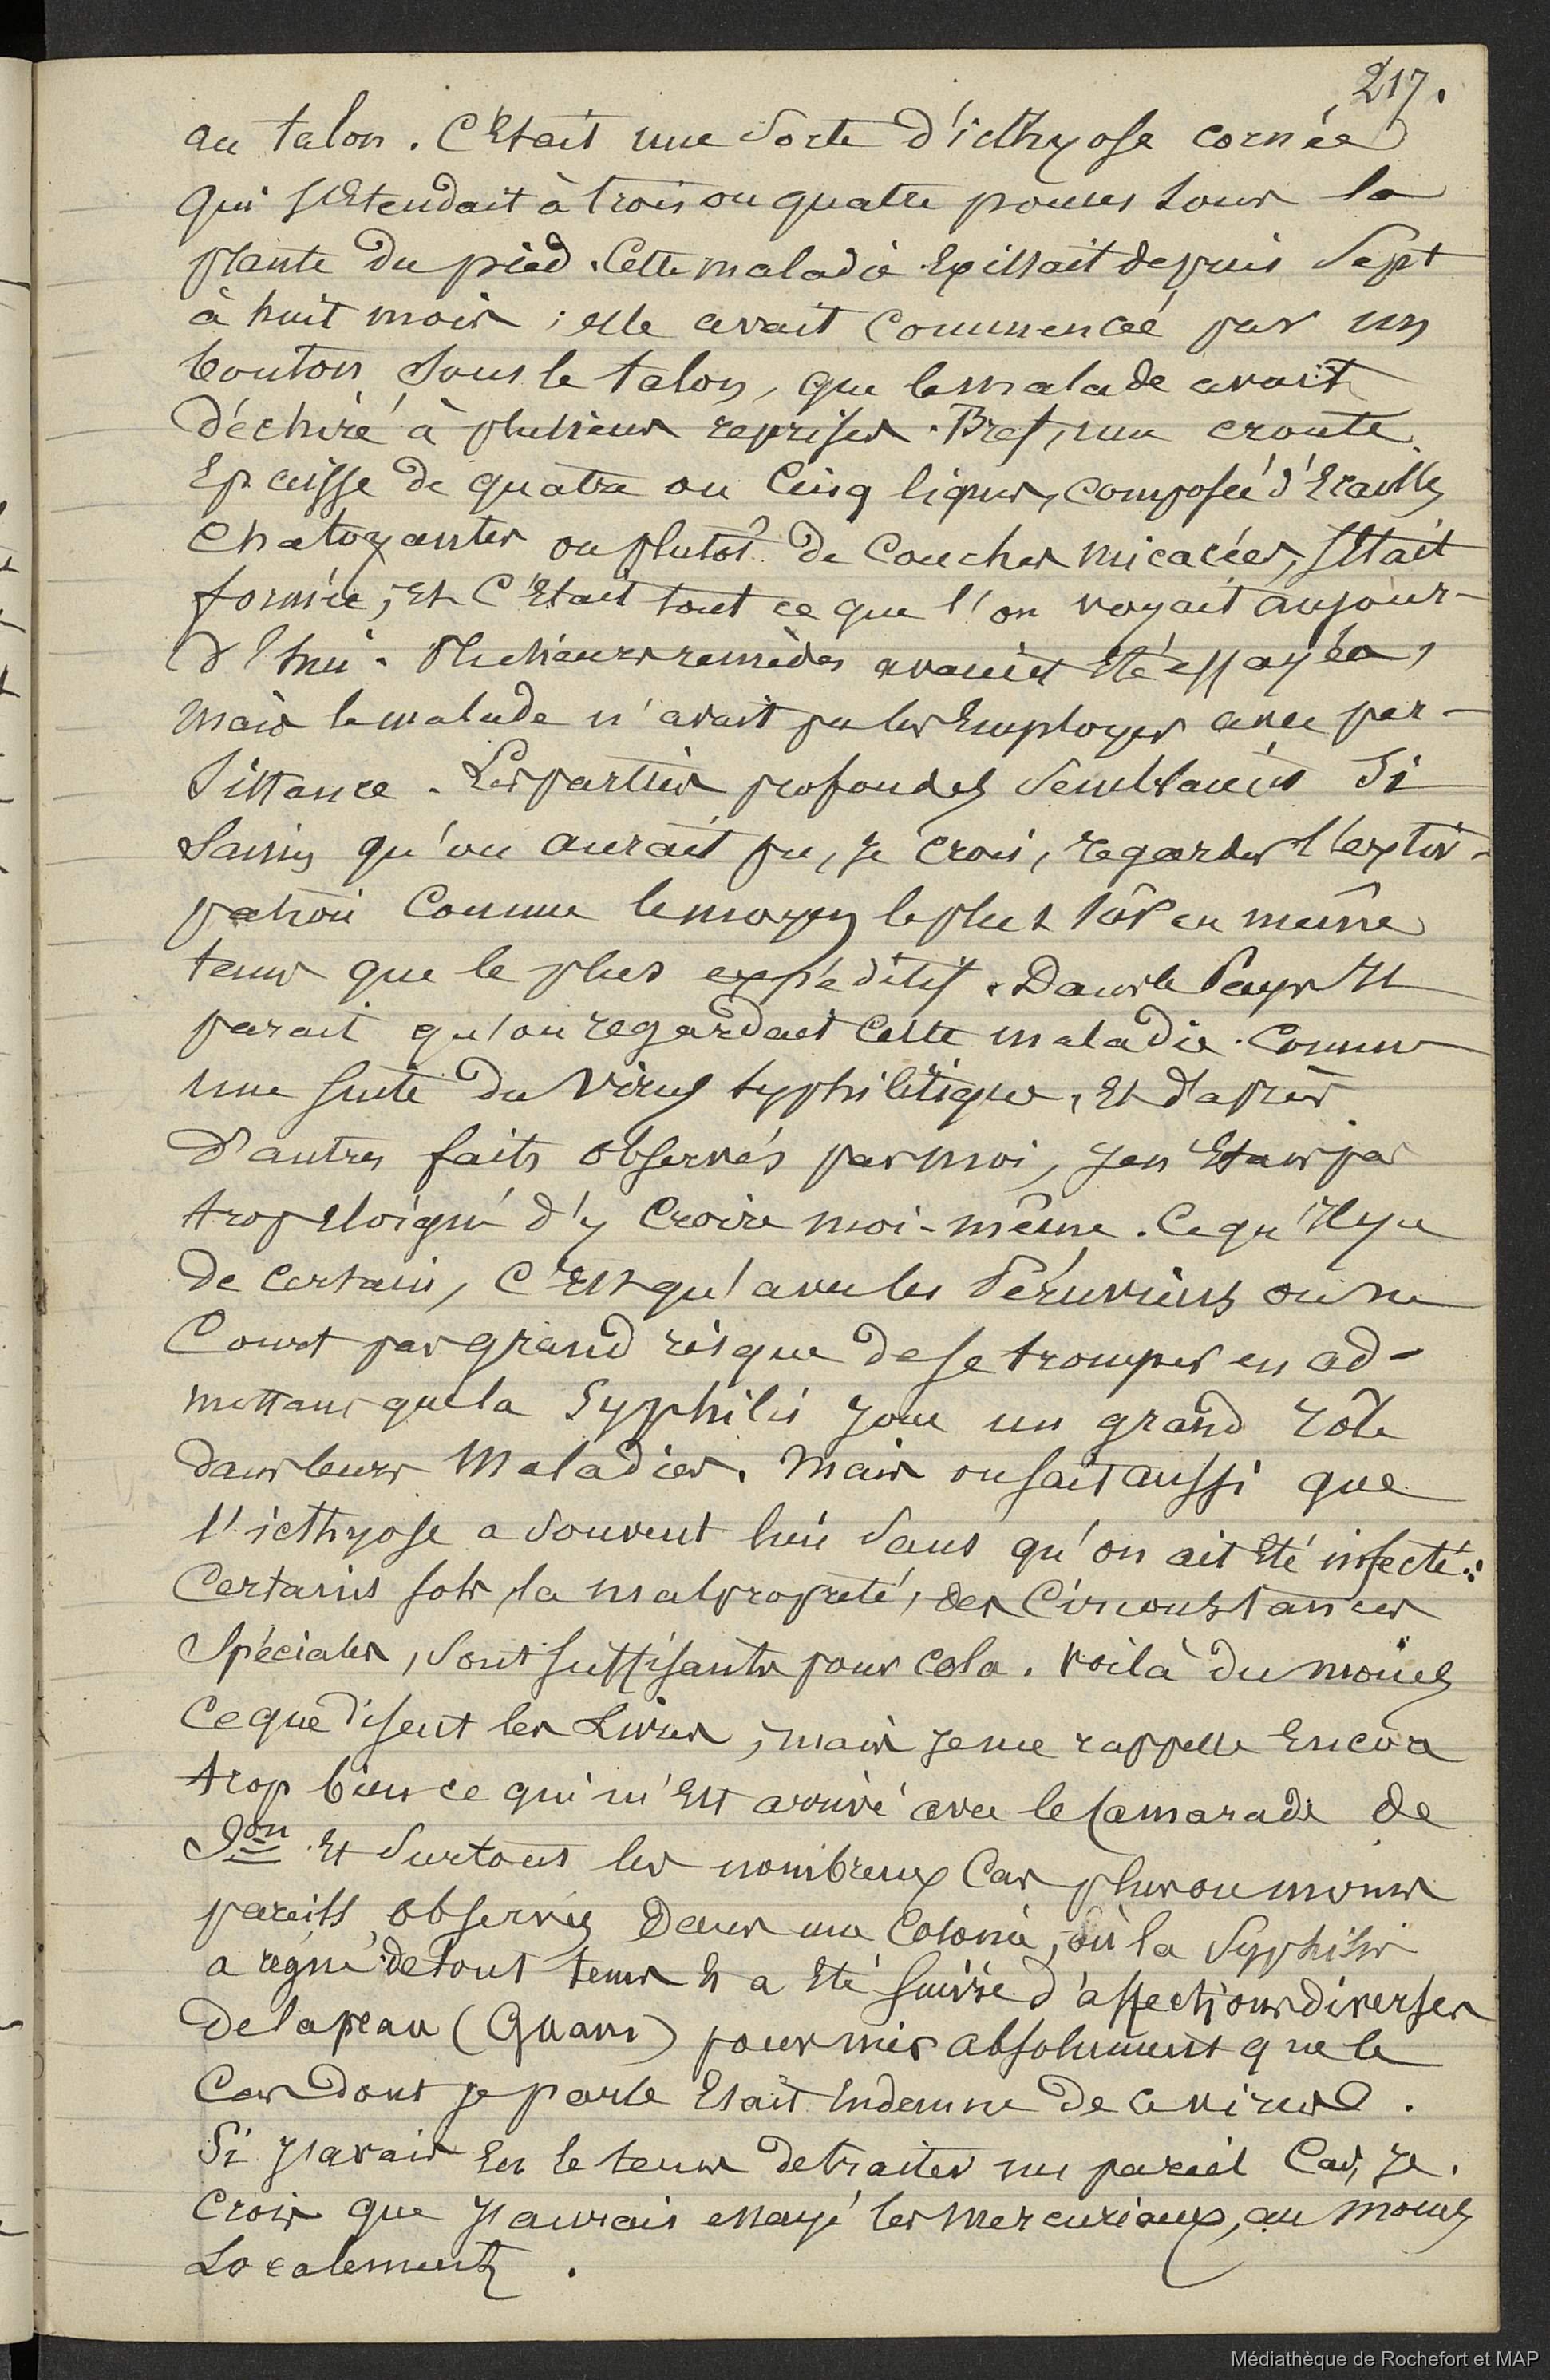 217.
au talon. C'était une sorte d'icthyose cornée
qui s'étendait à trois ou quatre pouces sous la
plante du pied. Cette maladie existait depuis sept
à huit mois ; elle avait commencé par un
bouton sous le talon, que le malade avait
déchiré à plusieurs reprises. Bref, une croute
épaisse de quatre ou cinq lignes, composée d'écailles
chatoyantes ou plutôt de couches micacées, s'était
formée, et c'était tout ce que l'on voyait aujour-
d'hui. Plusieurs remèdes avaient été essayés,
mais le malade n'avait pu les employer avec per-
sistance. Les parties profondes semblaient si
saines qu'on aurait pu, je crois, regarder l'extir-
pation comme le moyen le plus sûr en même
tems que le plus expéditif. Dans le pays il
parait qu'on regardait cette maladie comme
une suite du virus syphilitique, et d'après
d'autres faits observés par moi, j'en étais pas
trop éloigné d'y croire moi-même. Ce qu'il y a
de certain, c'est qu'avec les Péruviens on ne
court pas grand risque de se tromper en ad-
mettant que la syphilis joue un grand rôle
dans leurs maladies. Mais on sait aussi que
l'icthyose a souvent lieu sans qu'on ait été infecté :
certains sols, la malpropreté, des circonstances
spéciales, sont suffisants pour cela. Voilà du moins
ce que disent les livres ; mais je me rappelle encore
trop bien ce qui m'est arrivé avec le camarade de
et surtout les nombreux cas plus ou moins
pareils observés dans une colonie, où la syphilis
a régné de tout tems et a été suivie d'affections diverses
de la peau (Guam) pour nier absolument que le
cas dont je parle était indemne de ce virus.
Si j'avais eu le tems de traiter un pareil cas, je
crois que j'aurais essayé les mercuriaux, au moins
localement.
Médiathèque de Rochefort et MAP